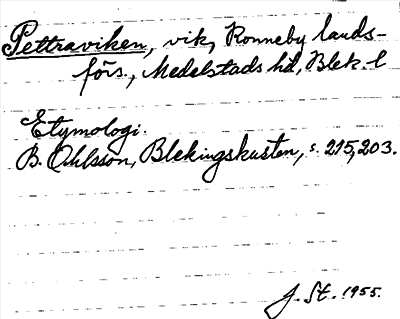 Pettraviken, vik, Ronneby lands-
förs., Medelstads hd, Blek. l
Etymologi.
B. Ohlsson, Blekingskusten, s. 215, 203.
J. St. 1955.